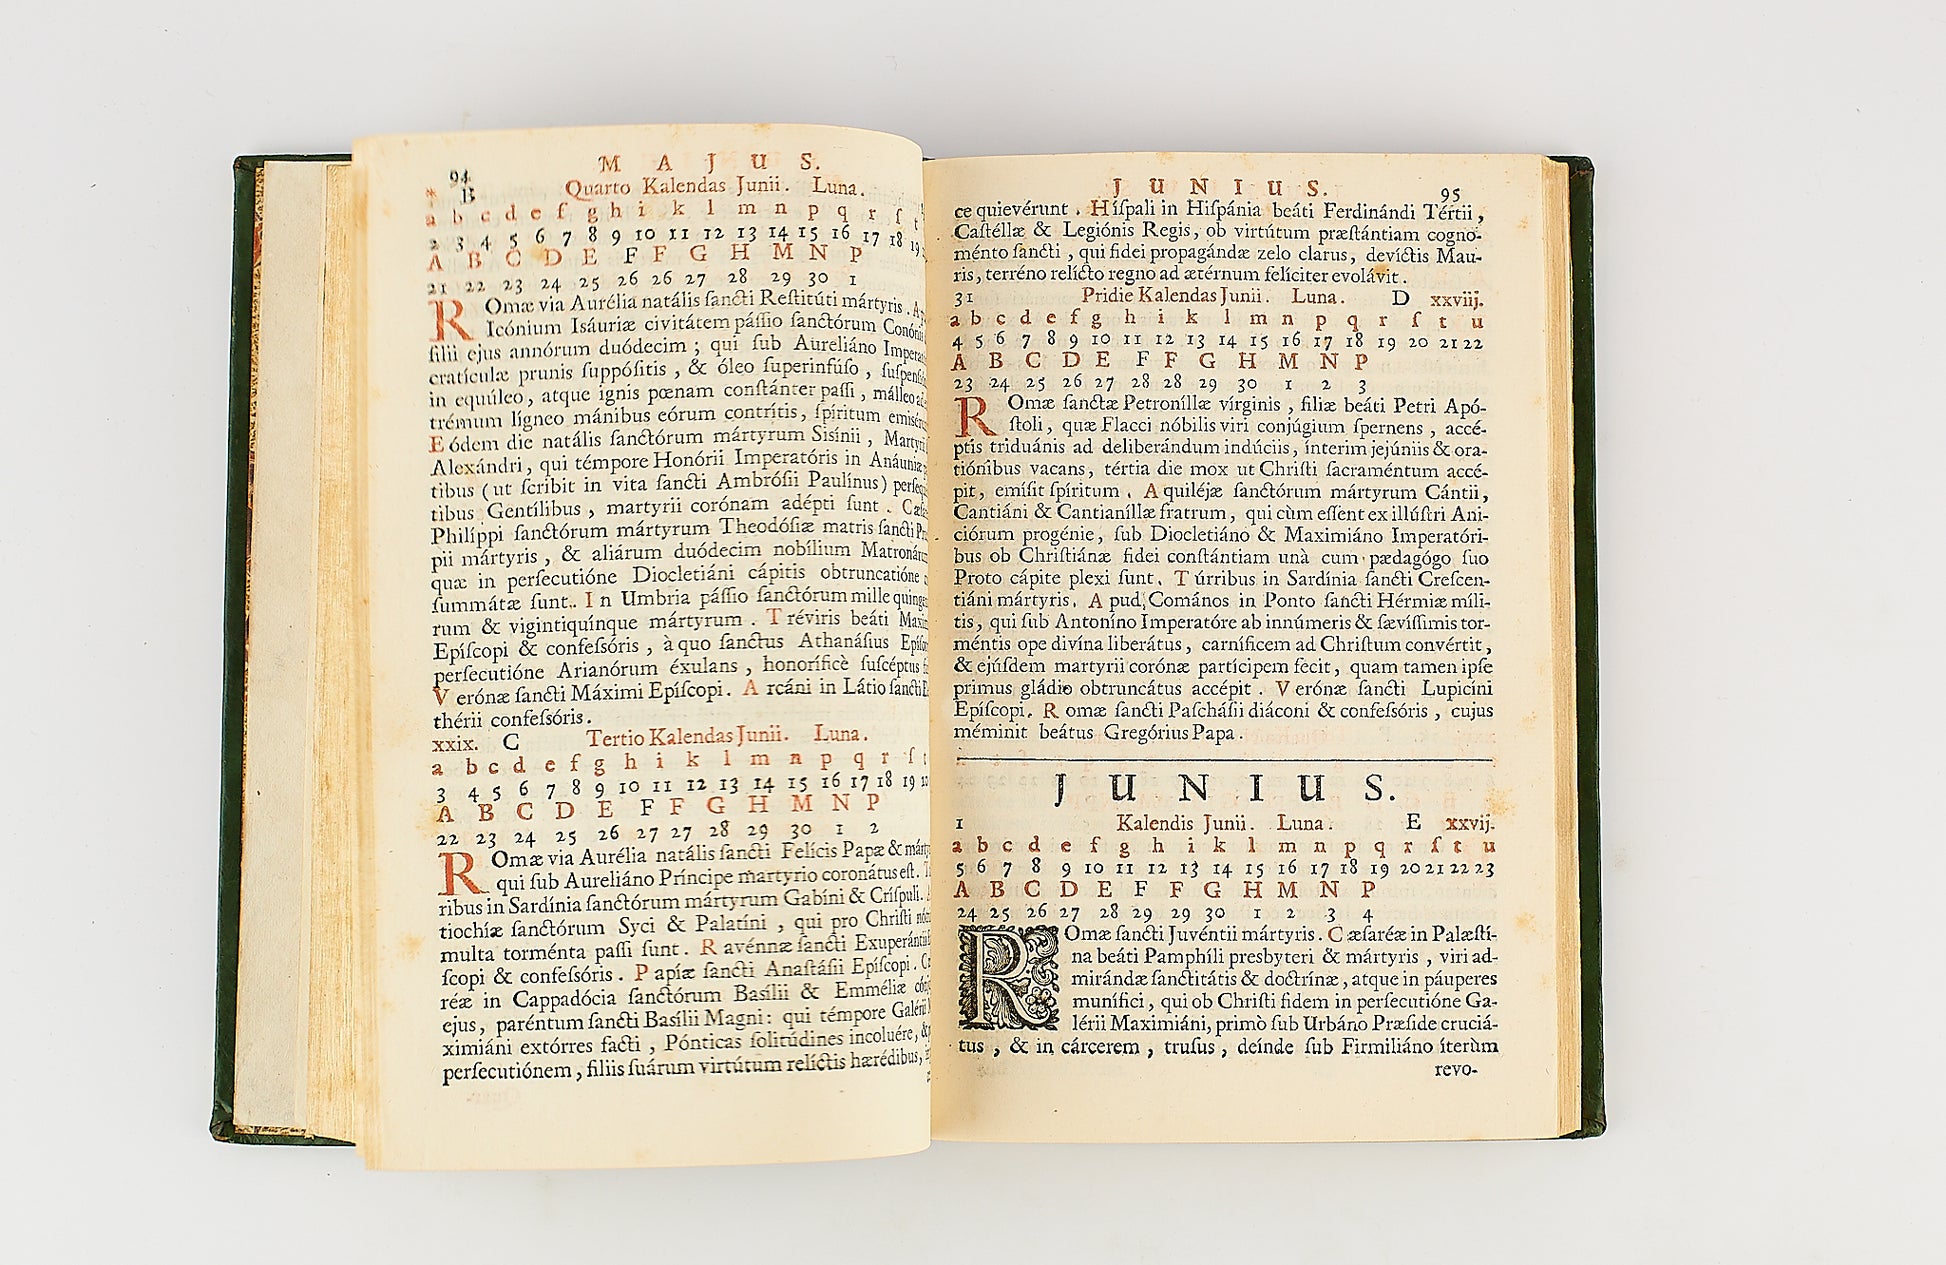 94 M A J U S.
* B Quarto Kalendas Junii. Luna.
a b c d e f g h i k l m n p q r ſ t
2 3 4 5 6 7 8 9 10 11 12 13 14 15 16 17 18 19
A B C D E F F G H M N P
21 22 23 24 25 26 26 27 28 29 30 1
ROmæ via Aurélia natális ſancti Reſtitúti mártyris.
Icónium Isáuriæ civitátem páſſio ſanctórum
filii ejus annórum duódecim; qui ſub Aureliáno
cratículæ prunis ſuppóſitis, & óleo ſuperinfúſo,
in equúleo, atque ignis pœnam conſtánter paſſi, málleo
trémum lígneo mánibus eórum contrítis, ſpíritum
Eódem die natális ſanctórum mártyrum Sisínii,
Alexándri, qui témpore Honórii Imperatóris in
tibus (ut ſcribit in vita ſancti Ambróſii Paulínus)
tibus Gentílibus, martyrii corónam adépti ſunt.
Philíppi ſanctórum mártyrum Theodóſiæ matris ſancti
pii mártyris, & aliárum duódecim nobílium
quæ in perſecutióne Diocletiáni cápitis obtruncatióne
ſummátæ ſunt. In Umbria páſſio ſanctórum mille
rum & vigintiquínque mártyrum. Tréviris beáti
Epíſcopi & confeſſóris, à quo ſanctus Athanáſius
perſecutióne Arianórum éxulans, honoríficè ſuſcéptus
Verónæ ſancti Máximi Epíſcopi. Arcáni in Látio ſancti
thérii confeſſóris.
xxix. C Tertio Kalendas Junii. Luna.
a b c d e f g h i k l m n p q r ſ t
3 4 5 6 7 8 9 10 11 12 13 14 15 16 17 18 19
A B C D E F F G H M N P
22 23 24 25 26 27 27 28 29 30 1 2
ROmæ via Aurélia natális ſancti Felícis Papæ &
qui ſub Aureliáno Príncipe martyrio coronátus eſt.
ribus in Sardínia ſanctórum mártyrum Gabíni & Críſpuli.
tiochíæ ſanctórum Syci & Palatíni, qui pro Chriſti
multa torménta paſſi ſunt. Ravénnæ ſancti
ſcopi & confeſſóris. Papíæ ſancti Anaſtáſii Epíſcopi.
réæ in Cappadócia ſanctórum Basílii & Emméliæ
ejus, paréntum ſancti Basílii Magni: qui témpore
ximiáni extórres facti, Pónticas ſolitúdines incoluére,
perſecutiónem, filiis ſuárum virtútum relíctis hærédibus,
J U N I U S. 95
ce quievérunt. Híſpali in Hiſpánia beáti Ferdinándi Tértii,
Caſtéllæ & Legiónis Regis, ob virtútum præſtántiam cogno-
ménto ſancti, qui fidei propagándæ zelo clarus, devíctis Mau-
ris, terréno relícto regno ad ætérnum felíciter evolávit.
31 Pridie Kalendas Junii. Luna. D xxviij.
a b c d e f g h i k l m n p q r ſ t u
4 5 6 7 8 9 10 11 12 13 14 15 16 17 18 19 20 21 22
A B C D E F F G H M N P
23 24 25 26 27 28 28 29 30 1 2 3
ROmæ ſanctæ Petroníllæ vírginis, filiæ beáti Petri Apó-
ſtoli, quæ Flacci nóbilis viri conjúgium ſpernens, accé-
ptis triduánis ad deliberándum indúciis, ínterim jejúniis & ora-
tiónibus vacans, tértia die mox ut Chriſti ſacraméntum accé-
pit, emíſit ſpíritum. Aquiléjæ ſanctórum mártyrum Cántii,
Cantiáni & Cantianíllæ fratrum, qui cùm eſſent ex illúſtri Ani-
ciórum progénie, ſub Diocletiáno & Maximiáno Imperatóri-
bus ob Chriſtiánæ fidei conſtántiam unà cum pædagógo ſuo
Proto cápite plexi ſunt. Túrribus in Sardínia ſancti Creſcen-
tiáni mártyris. Apud Comános in Ponto ſancti Hérmiæ míli-
tis, qui ſub Antoníno Imperatóre ab innúmeris & ſævíſſimis tor-
méntis ope divína liberátus, carníficem ad Chriſtum convértit,
& ejúſdem martyrii corónæ partícipem fecit, quam tamen ipſe
primus gládio obtruncátus accépit. Verónæ ſancti Lupicíni
Epíſcopi. Romæ ſancti Paſcháſii diáconi & confeſſóris, cujus
méminit beátus Gregórius Papa.
J U N I U S.
1 Kalendis Junii. Luna. E xxvij.
a b c d e f g h i k l m n p q r ſ t u
5 6 7 8 9 10 11 12 13 14 15 16 17 18 19 20 21 22 23
A B C D E F F G H M N P
24 25 26 27 28 29 29 30 1 2 3 4
ROmæ ſancti Juvéntii mártyris. Cæſaréæ in Palæſtí-
na beáti Pamphíli presbyteri & mártyris, viri ad-
mirándæ ſanctitátis & doctrínæ, atque in páuperes
munífici, qui ob Chriſti fidem in perſecutióne Ga-
lérii Maximiáni, primò ſub Urbáno Præſide cruciá-
tus, & in cárcerem, truſus, deínde ſub Firmiliáno íterùm
revo-